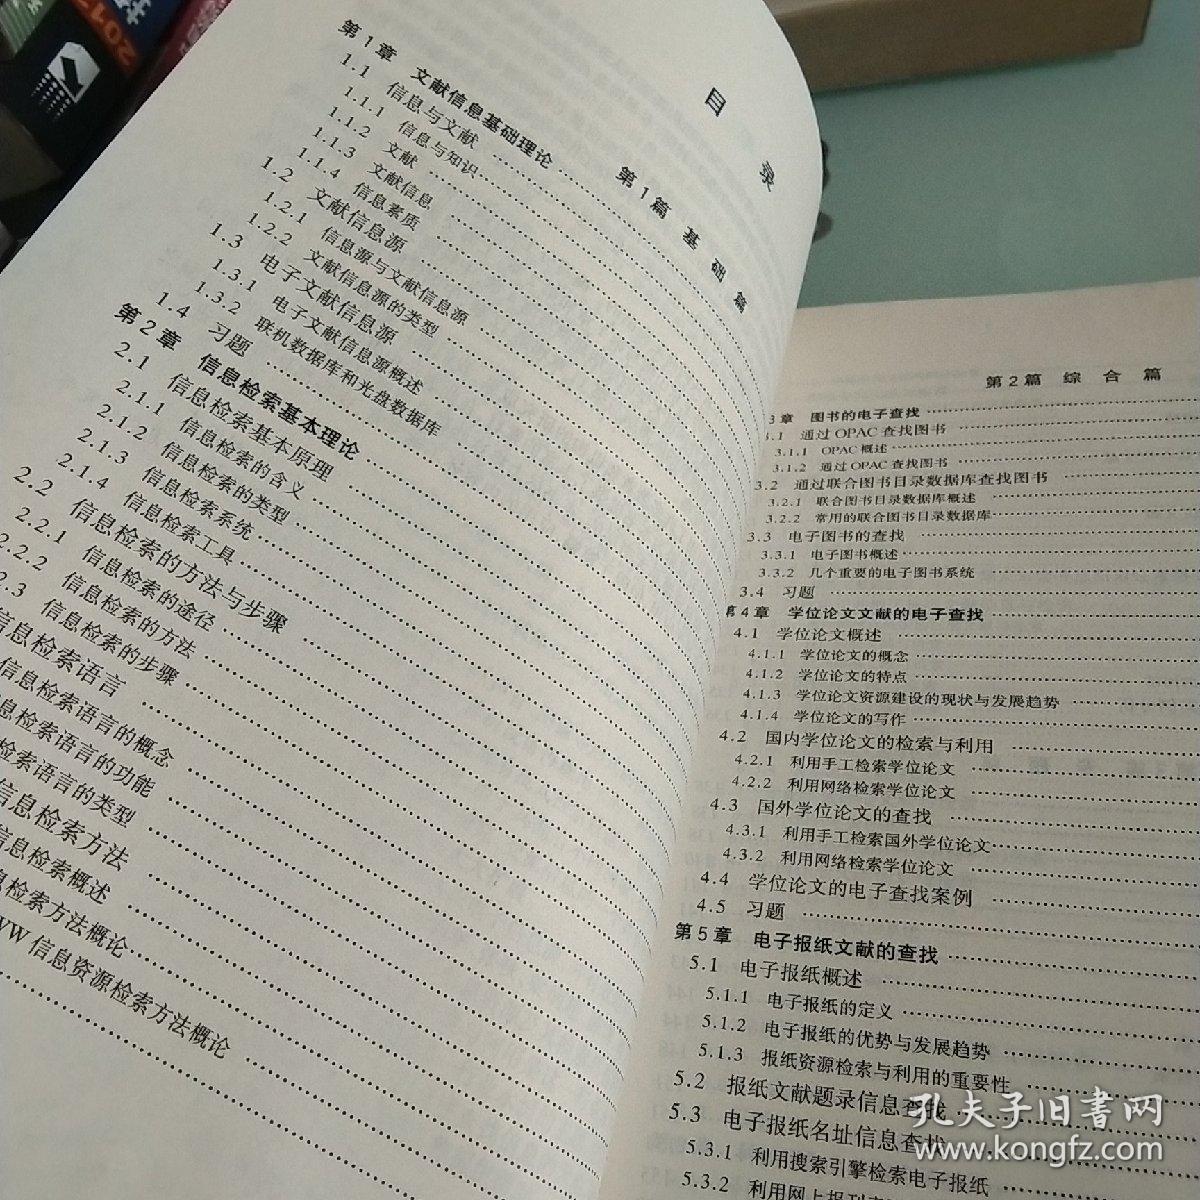 目 录
第1篇 基 础 篇
第1章 文献信息基础理论
1.1 信息与文献
1.1.1 信息与知识
1.1.2 文献
1.1.3 文献信息
1.1.4 信息素质
1.2 文献信息源
1.2.1 信息源与文献信息源
1.2.2 文献信息源的类型
1.3 电子文献信息源
1.3.1 电子文献信息源概述
1.3.2 联机数据库和光盘数据库
1.4 习题
第2章 信息检索基本理论
2.1 信息检索基本原理
2.1.1 信息检索的含义
2.1.2 信息检索的类型
2.1.3 信息检索系统
2.1.4 信息检索工具
2.2 信息检索的方法与步骤
2.2.1 信息检索的途径
2.2.2 信息检索的方法
2.3 信息检索的步骤
信息检索语言
信息检索语言的概念
息检索语言的功能
检索语言的类型
信息检索方法
信息检索概述
息检索方法概论
WW信息资源检索方法概论
第2篇 综 合 篇
3章 图书的电子查找
3.1 通过OPAC查找图书
3.1.1 OPAC概述
3.1.2 通过OPAC查找图书
3.2 通过联合图书目录数据库查找图书
3.2.1 联合图书目录数据库概述
3.2.2 常用的联合图书目录数据库
3.3 电子图书的查找
3.3.1 电子图书概述
3.3.2 几个重要的电子图书系统
3.4 习题
第4章 学位论文文献的电子查找
4.1 学位论文概述
4.1.1 学位论文的概念
4.1.2 学位论文的特点
4.1.3 学位论文资源建设的现状与发展趋势
4.1.4 学位论文的写作
4.2 国内学位论文的检索与利用
4.2.1 利用手工检索学位论文
4.2.2 利用网络检索学位论文
4.3 国外学位论文的查找
4.3.1 利用手工检索国外学位论文
4.3.2 利用网络检索学位论文
4.4 学位论文的电子查找案例
4.5 习题
第5章 电子报纸文献的查找
5.1 电子报纸概述
5.1.1 电子报纸的定义
5.1.2 电子报纸的优势与发展趋势
5.1.3 报纸资源检索与利用的重要性
5.2 报纸文献题录信息查找
5.3 电子报纸名址信息查找
5.3.1 利用搜索引擎检索电子报纸
5.3.2 利用网上报刊
孔夫子旧书网
www.kongfz.com